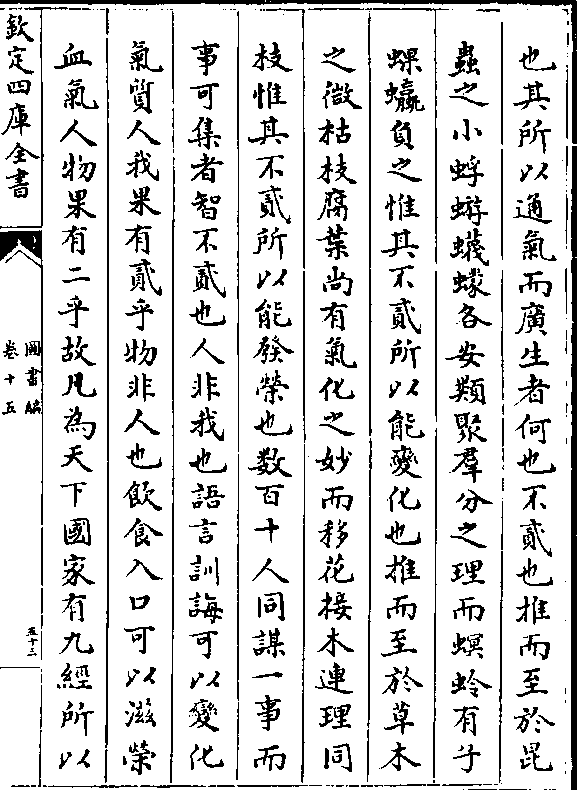 也其所以通氣而廣生者何也不貳也推而至於昆
蟲之小蜉蝣蠛蠓各安類聚羣分之理而螟蛉有子
蜾蠃負之惟其不貳所以能變化也推而至於草木
之微枯枝腐葉尚有氣化之妙而移花接木連理同
枝惟其不貳所以能發榮也数百十人同謀一事而
事可集者智不貳也人非我也語言訓誨可以變化
氣質人我果有貳乎物非人也飲食入口可以滋榮
血氣人物果有二乎故凡為天下國家有九經所以
欽定四庫全書
圖書編
卷十五
五十二